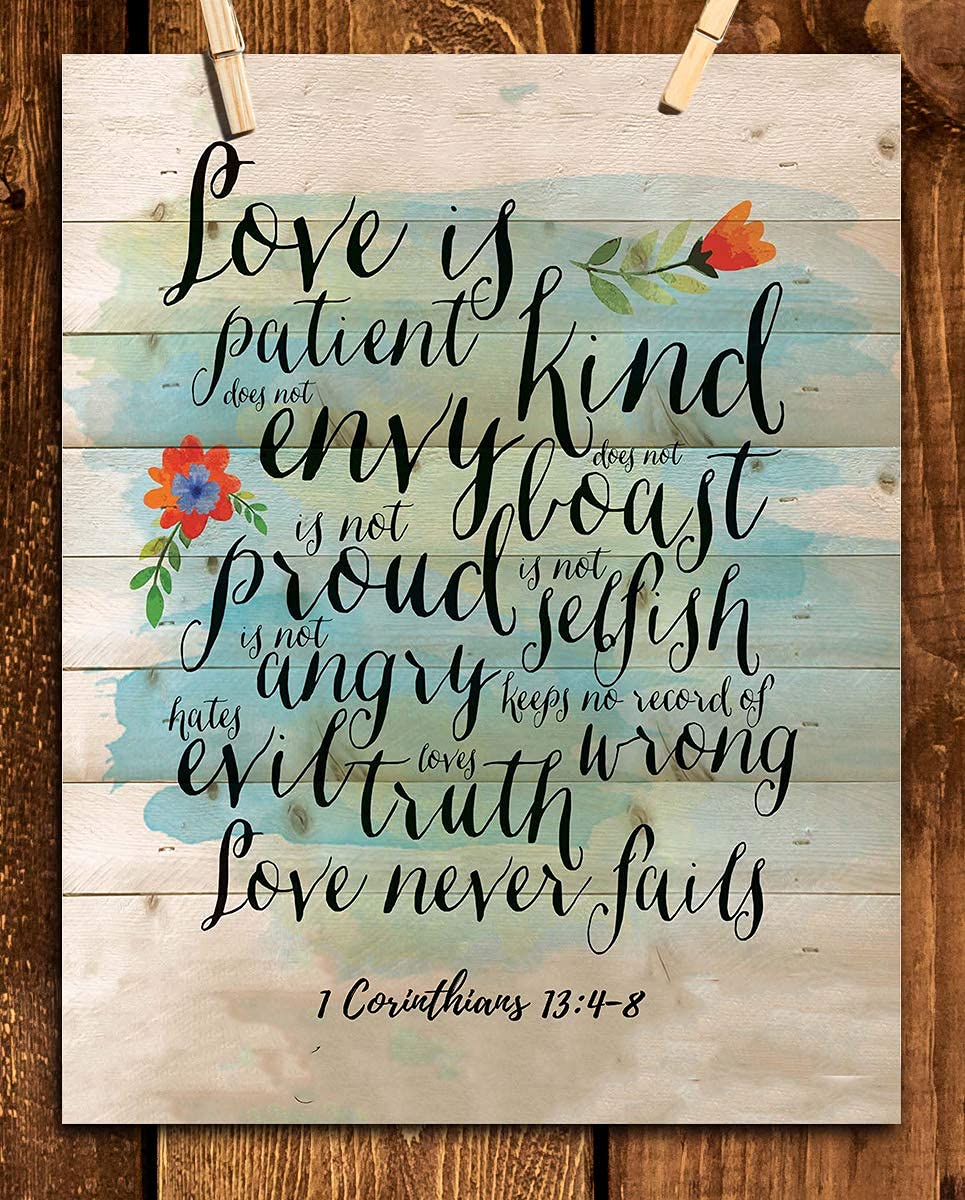 Love is
patient kind
does not
envy does not
boast
is not
proud is not
selfish
is not
angry keeps no record of
wrong
hates
evil loves
truth
Love never fails
1 Corinthians 13:4-8